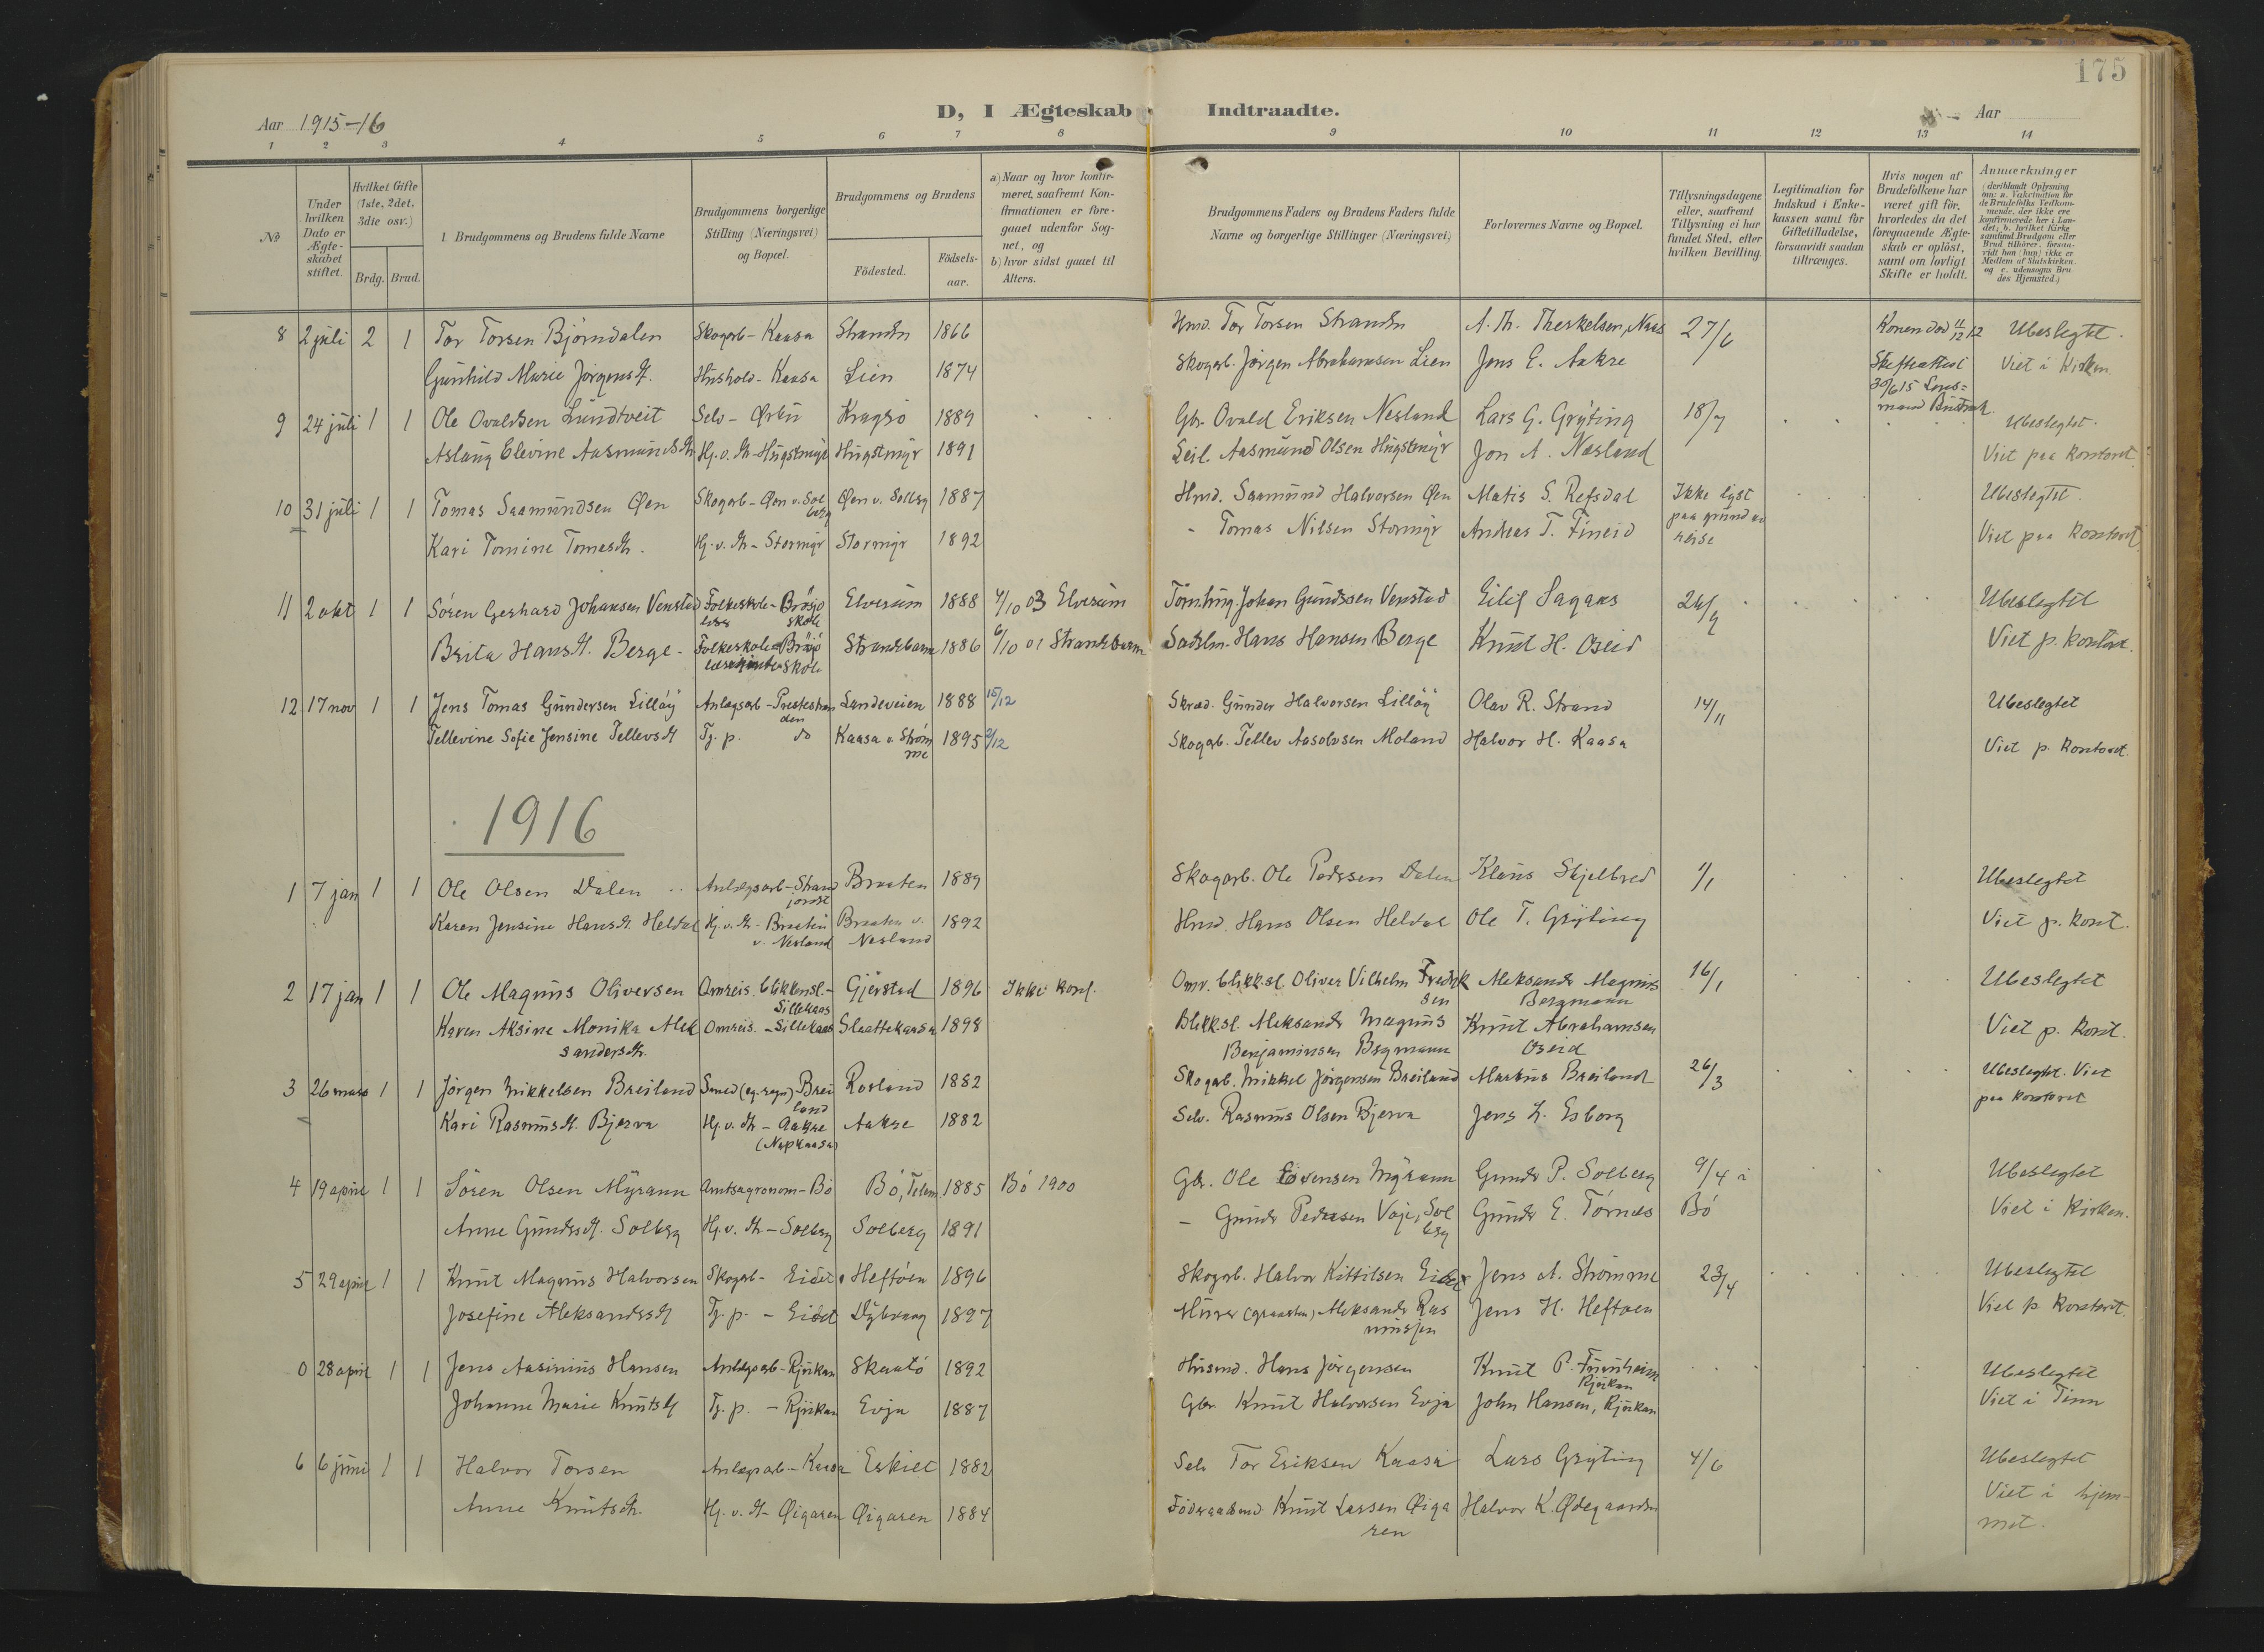 175
D, I Ægteskab Indtraadte.
Aar 1915-16
Aar
1 2 3 4 5 6 7 8 9 10 11 12 13 14
No
Under hvilken Dato er Ægteskabet stiftet.
Hvilket Gifte (1ste, 2det, 3die osv.)
Brdg. Brud.
Brudgommens og Brudens fulde Navne
Brudgommens borgerlige Stilling (Næringsvei) og Bopæl.
Brudgommens og Brudens
Födested.
Födselsaar.
a) Naar og hvor konfirmeret, saafremt Konfirmationen er foregaaet udenfor Sognet, og
b) hvor sidst gaaet til Alters.
Brudgommens Faders og Brudens Faders fulde Navne og borgerlige Stillinger (Næringsvei)
Forlovernes Navne og Bopæl.
Tillysningsdagene eller, saafremt Tillysning ei har fundet Sted, efter hvilken Bevilling.
Legitimation for Indskud i Enkekassen samt for Giftetilladelse, forsaavidt saadan tiltrænges.
Hvis nogen af Brudefolkene har været gift för, hvorledes da det foregaaende Ægteskab er oplöst, samt om lovligt Skifte er holdt.
Anmærkninger
8 2 juli 2 1 Tor Torsen Bjørndalen Skogarb - Kaasa Stranden 1866 Hmd. Tor Torsen Stranden A. Th. Therkelsen, Naas 27/6 Konen död 11/12 12 Ubeslegtet.
Gunhild Marie Jørgensdt. Hushold - Kaasa Lien 1874 Skogarb. Jørgen Abrahamsen Lien Jens E. Aakre Skifteattest Viet i Kirken.
30/6 15
9 24 juli 1 1 Ole Ovaldsen Lundtveit Selv - Ørbu Kragsö 1889 Gbr. Ovald Eriksen Nesland Lars G. Gryting 18/7 Ubeslegtet.
Aslaug Elevine Aasmundsdt. Hj. v. Th - Hugstmyr Hugstmyr 1891 Leil. Aasmund Olsen Hugstmyr Jon A. Nesland Viet paa kontoret
10 31 juli 1 1 Tomas Saamundsen Øen Skogarb - Øen v. Solberg Øen v. Solberg 1887 Hmd. Saamund Halvorsen Øen Matis S. Refsdal Ikke lyst paa grund av reise Ubeslegtet.
Kari Tomine Tomasdt. Hj. v. Th - Stormyr Stormyr 1892 - Tomas Nilsen Stormyr Andreas T. Fineid Viet paa kontoret
11 2 okt 1 1 Sören Gerhard Johansen Venstad Folkeskole- Brösjö skole Elverum 1888 4/10 03 Elverum Johan Gundersen Venstad Eilif Sagaas 26/9 Ubeslegtet
Brita Hansdt. Berge Folkeskole skole Strandebarm 1886 6/10 01 Strandebarm Hans Hansen Berge Knut H. Oseid Viet p. kontoret.
12 17 nov 1 1 Jens Tomas Gundersen Lilløy Anlegsarb - Presteshanden Landeveien 1888 15/12 Skræd. Gunder Halvorsen Lilløy Olav R. Strand 14/11 Ubeslegtet
Tellevine Sofie Jensine Tellevsdt Tj. p. do Kaasa v. Strømme 1895 9/12 Skogarb. Tellev Aasolvsen Moland Halvor H. Kaasa Viet p. kontoret
1916
1 7 jan 1 1 Ole Olsen Dalen Anlegsarb - Strand Braaten 1889 Skogarb. Ole Pedersen Dalen Klaus Skjelbred 1/1 Ubeslegtet
Karen Jensine Hansdt. Heldal Hj. v. Th. - Braaten v. Nesland Braaten v. Nesland 1892 Hmd. Hans Olsen Heldal Ole T. Gryting Viet p. kont.
2 17 jan 1 1 Ole Magnus Oliversen Omreis. blikkensl. - Sillekaas Gjerstad 1896 Ikke konf. Omr. blikk.sl. Oliver Vilhelm Fredriksen Aleksander Magnus Bergmann 16/1 Ubeslegtet
Karen Aksine Monika Aleksandersdt. Omreis. - Sillekaas Slaattekaasa 1898 Blikk.sl. Aleksander Magnus Benjaminsen Bergmann Knut Abrahamsen Oseid Viet p. kont.
3 26 mars 1 1 Jörgen Mikkelsen Breiland Smed (eg. regn) Breiland Rosland 1882 Skogarb. Mikkel Jörgensen Breiland Markus Breiland 26/3 Ubeslegtet. Viet paa kontoret
Kari Rasmusdt. Bjerva Hj. v. Th - Aakre (Napkaasa) Aakre 1882 Selv. Rasmus Olsen Bjerva Jens L. Esborg
4 19 april 1 1 Sören Olsen Myrann Amtsagronom - Bö Bö, Telem 1885 Bö 1900 Gbr. Ole Myrann Gunder P. Solberg 9/4 i Bö Ubeslegtet
Anne Gundersdt. Solberg Hj. v. Th. - Solberg Solberg 1891 - Gunder Pedersen Vaje, Solberg Gunder E. Törnes Viet i Kirken.
5 29 april 1 1 Knut Magnus Halvorsen Skogarb - Eidet Heftöen 1896 Skogarb. Halvor Kittilsen Eidet Jens A. Strömme 23/4 Ubeslegtet
Josefine Aleksandersdt Tj. p. - Eidet Dybvaag 1897 Murer (graasten) Aleksander Rasmussen Jens H. Heftøen Viet p. kontoret
0 28 april 1 1 Jens Aasinius Hansen Anlegsarb - Rjukan Skaatö 1892 Husmd. Hans Jörgensen Knut P. Furuheim Rjukan Ubeslegtet
Johanne Marie Knutsdt Tj. p. - Rjukan Evja 1887 Gbr. Knut Halvorsen Evja John Hansen, Rjukan Viet i Tinn
6 6 juni 1 1 Halvor Torsen Anlegsarb - Kaasa Eskilt 1882 Selv Tor Eriksen Kaasa Lars Gryting 4/6 Ubeslegtet
Anne Knutsdt. Hj. v. Th - Øigaren Øigaren 1884 Föderaadsmd. Knut Larsen Øigaren Halvor K. Ødegaarden Viet i hjemmet.